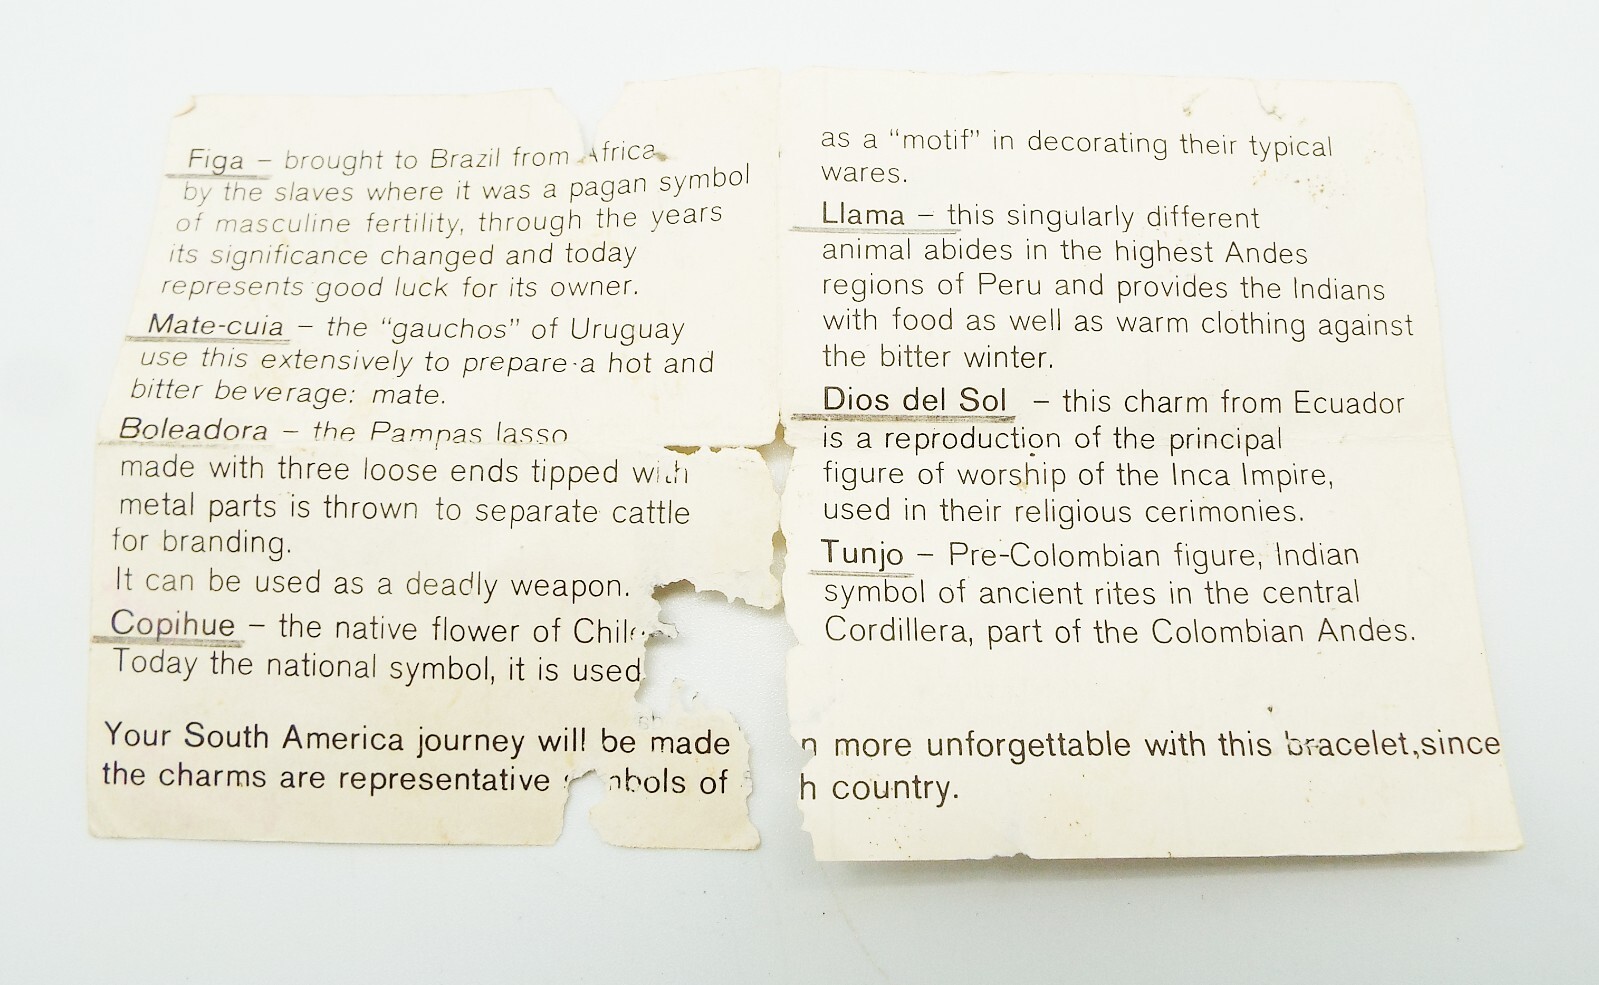 Figa – brought to Brazil from Africa
by the slaves where it was a pagan symbol
of masculine fertility, through the years
its significance changed and today
represents good luck for its owner.
Mate-cuia – the "gauchos" of Uruguay
use this extensively to prepare a hot and
bitter beverage: mate.
Boleadora – the Pampas lasso
made with three loose ends tipped with
metal parts is thrown to separate cattle
for branding.
It can be used as a deadly weapon.
Copihue – the native flower of Chile
Today the national symbol, it is used
as a "motif" in decorating their typical
wares.
Llama – this singularly different
animal abides in the highest Andes
regions of Peru and provides the Indians
with food as well as warm clothing against
the bitter winter.
Dios del Sol – this charm from Ecuador
is a reproduction of the principal
figure of worship of the Inca Impire,
used in their religious cerimonies.
Tunjo – Pre-Colombian figure, Indian
symbol of ancient rites in the central
Cordillera, part of the Colombian Andes.
Your South America journey will be made n more unforgettable with this bracelet,since
the charms are representative bols of h country.